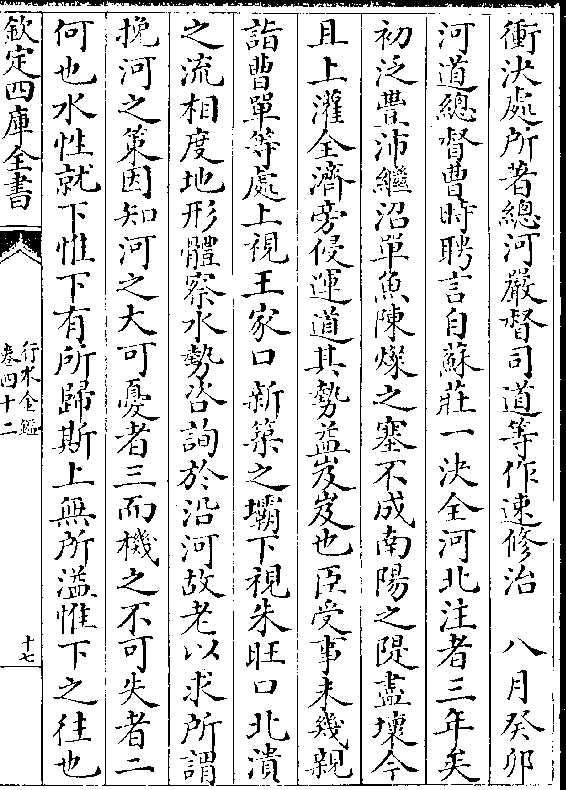 衝決處所著總河嚴督司道等作速修治　八月癸卯
河道總督曹時聘言自蘇莊一決全河北注者三年矣
初泛豐沛繼沼單魚陳燦之塞不成南陽之隄盡壞今
且上灌全濟旁侵運道其勢益岌岌也臣受事未幾親
詣曹單等處上視王家口新築之壩下視朱旺口北潰
之流相度地形體察水勢咨詢於沿河故老以求所謂
挽河之策因知河之大可憂者三而機之不可失者二
何也水性就下惟下有所歸斯上無所溢惟下之往也
欽定四庫全書
行水金鑑
卷四十二
十七